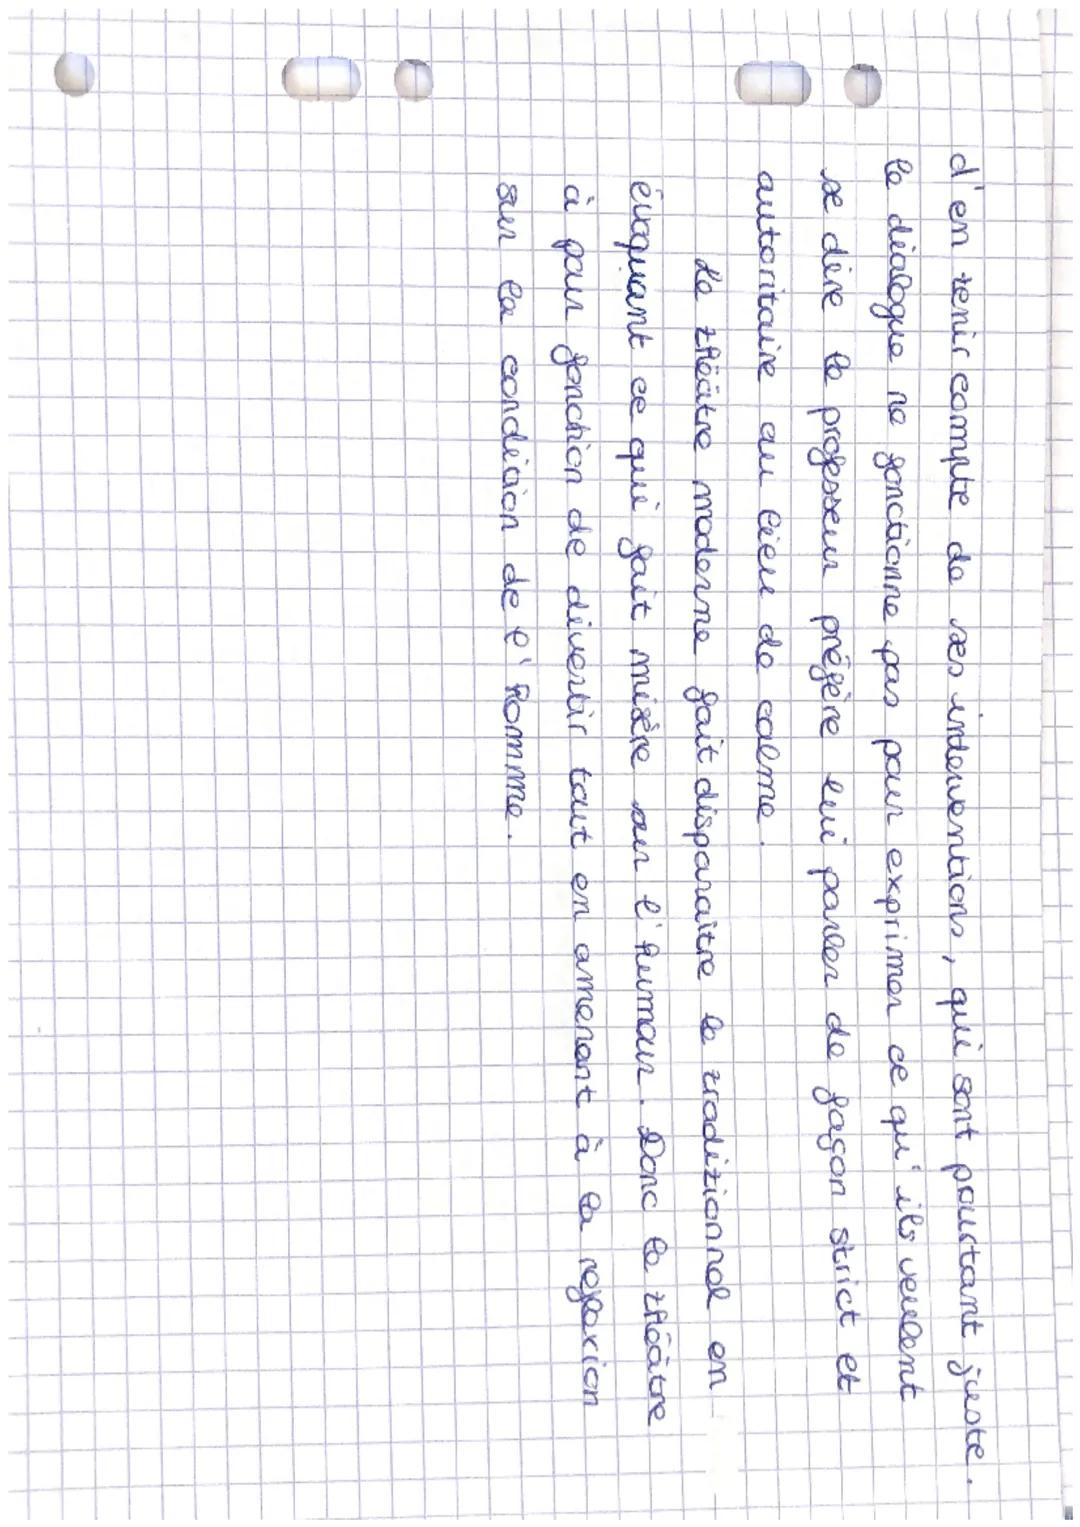 d'en tenir compte de ses interventions, qui sont pourtant juste.
le dialogue ne fonctionne pas pour exprimer ce qu'ils veulent
se dire le professeur préfère lui parler de façon strict et
autoritaire au lieu de calme.
Le théâtre moderne fait disparaître le tradizionnel en
évoquant ce qui fait misère sur l'humour. Donc le théâtre
à pour fonction de divertir tout en amenant à la reflexion
sur la condition de l'homme.